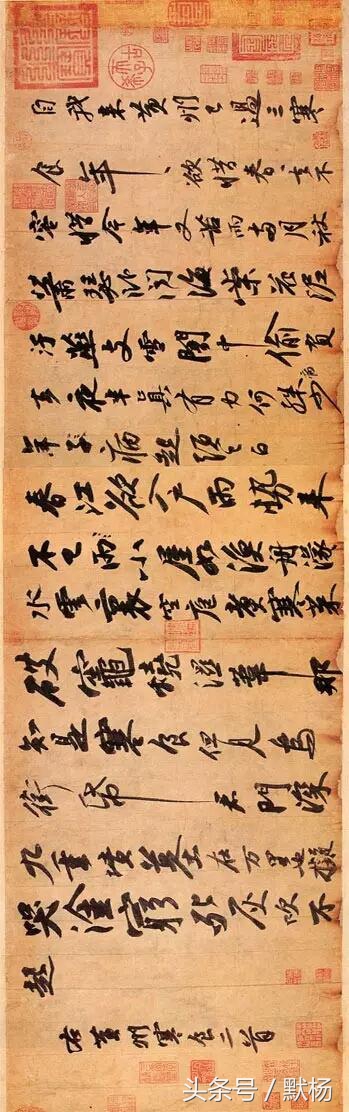 自我来黄州已過三寒
食年〻欲惜春〻去不
容惜今年又苦雨兩月秋
蕭瑟卧聞海棠花泥
汙燕支雪闇中偷負
去夜半真有力何殊病少
年子病起頭已白
春江欲入户雨勢来
不已雨小屋如漁舟濛〻
水雲裏空庖煮寒菜
破竈燒濕葦那
知是寒食但見烏
銜帋君門深
九重墳墓在万里也擬
哭塗窮死灰吹不
起
右黄州寒食二首
头条号 / 默杨